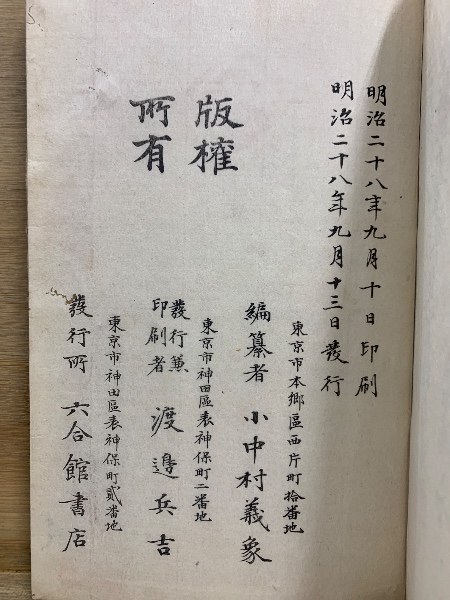 明治二十八年九月十日印刷
明治二十八年九月十三日發行
版權
所有
東京市本郷區西片町拾番地
編纂者 小中村義象
東京市神田區表神保町二番地
發行兼
印刷者 渡邉兵吉
東京市神田區表神保町貳番地
發行所 六合館書店